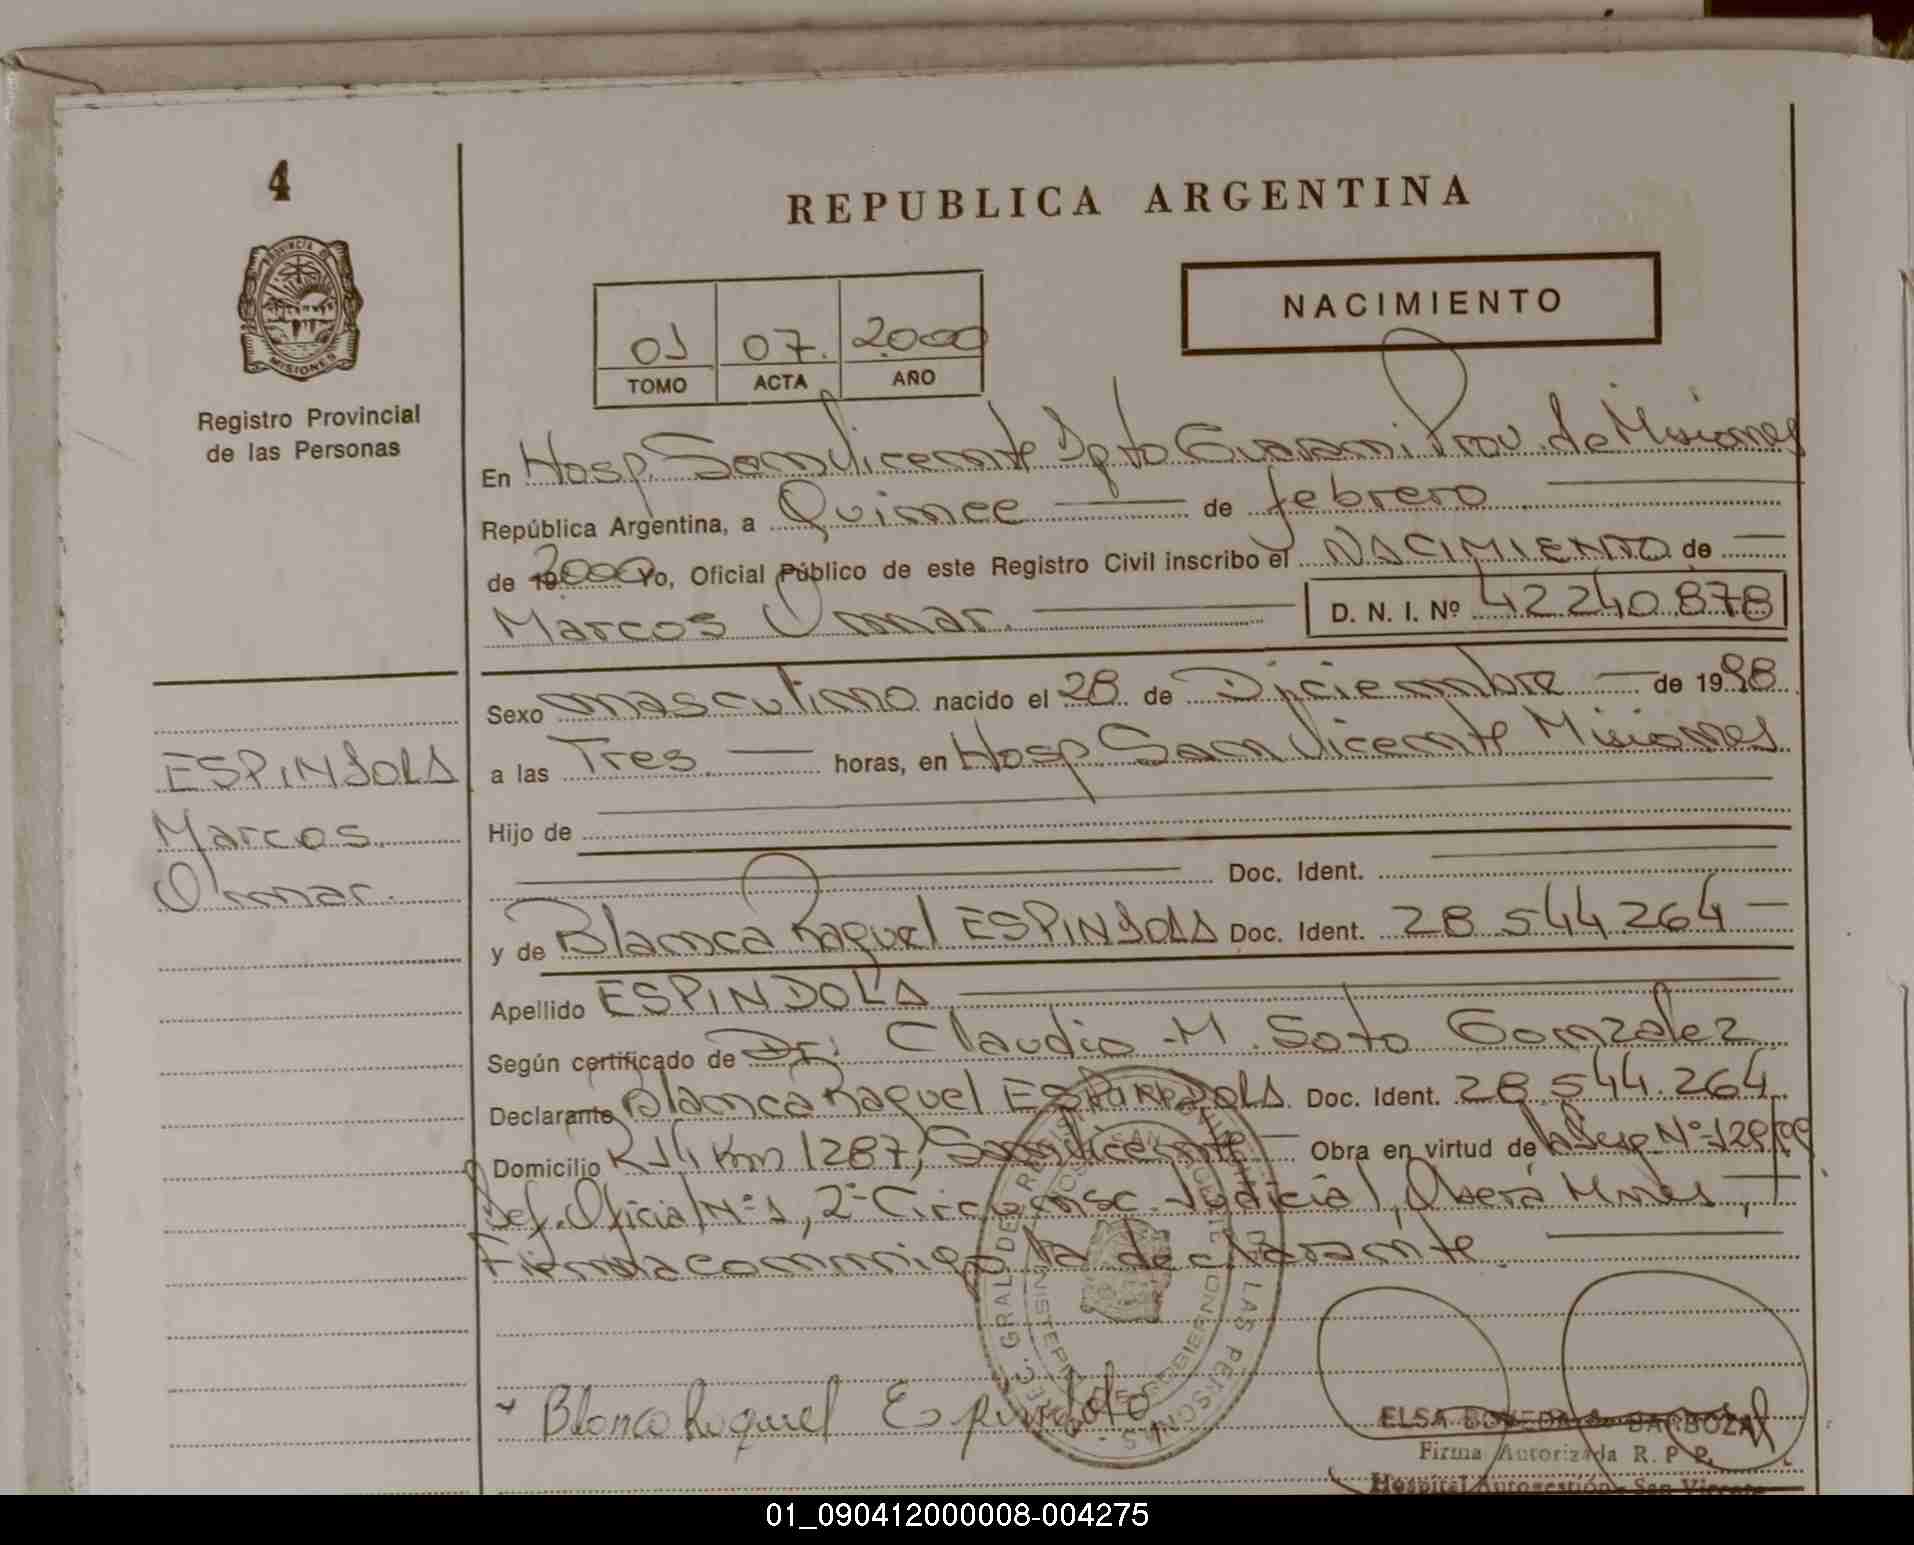 4
REPUBLICA ARGENTINA
NACIMIENTO
01 07. 2000
TOMO ACTA AÑO
Registro Provincial
de las Personas
En Hosp. San Vicente Dpto Guarani Prov. de Misiones
República Argentina, a Quince de febrero
de 2000 Yo, Oficial Público de este Registro Civil inscribo el NACIMIENTO de
Marcos Omar. D. N. I. Nº 42240878
Sexo masculino nacido el 28 de Diciembre de 1998
a las Tres horas, en Hosp. San Vicente Misiones
ESPINDOLA
Marcos
Omar.
Hijo de
Doc. Ident.
y de Blanca Raquel ESPINDOLA Doc. Ident. 28 544 264
Apellido ESPINDOLA
Según certificado de Dr. Claudio M. Soto Gonzalez
Declarante Blanca Raquel ESPINDOLA Doc. Ident. 28.544.264
Domicilio R 14 Km 1287, San Vicente Obra en virtud de la Nº 128/99
Def. Oficial Nº 1, 2º Circunsc. Judicial, Oberá Mnes,
Firma conmigo la declarante.
Blanca Raquel Espindola
ELSA BARBOZA
Firma Autorizada R. P. P.
Hospital Autogestión - San Vicente
01_090412000008-004275